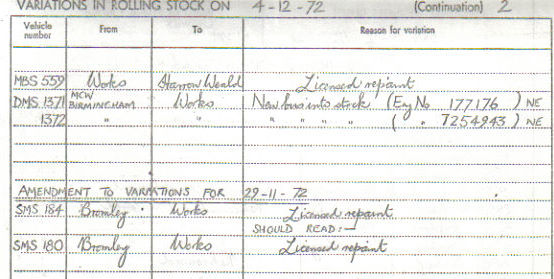 VARIATIONS IN ROLLING STOCK ON 4-12-72 (Continuation) 2
Vehicle number From To Reason for variation
MBS 559 Works Harrow Weald Licensed repaint
DMS 1371 MCW BIRMINGHAM Works New bus into stock (Eng No 177176 ) NE
1372 " " " " " " ( " 7254943 ) NE
AMENDMENT TO VARIATIONS FOR 29-11-72
SMS 184 Bromley Works Licensed repaint
SHOULD READ:-
SMS 180 Bromley Works Licensed repaint